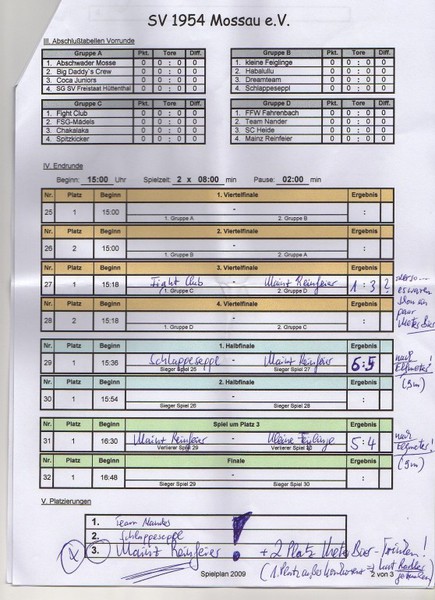 SV 1954 Mossau e.V.
III. Abschlußtabellen Vorrunde
Gruppe A Pkt. Tore Diff.
1. Abschwader Mosse 0 0 : 0 0
2. Big Daddy's Crew 0 0 : 0 0
3. Coca Juniors 0 0 : 0 0
4. SG SV Freistaat Hüttenthal 0 0 : 0 0
Gruppe B Pkt. Tore Diff.
1. kleine Feiglinge 0 0 : 0 0
2. Habalulu 0 0 : 0 0
3. Dreamteam 0 0 : 0 0
4. Schlappeseppl 0 0 : 0 0
Gruppe C Pkt. Tore Diff.
1. Fight Club 0 0 : 0 0
2. FSG-Mädels 0 0 : 0 0
3. Chakalaka 0 0 : 0 0
4. Spitzkicker 0 0 : 0 0
Gruppe D Pkt. Tore Diff.
1. FFW Fahrenbach 0 0 : 0 0
2. Team Nander 0 0 : 0 0
3. SC Heide 0 0 : 0 0
4. Mainz Reinfeier 0 0 : 0 0
IV. Endrunde
Beginn: 15:00 Uhr Spielzeit: 2 x 08:00 min Pause: 02:00 min
Nr. Platz Beginn 1. Viertelfinale Ergebnis
25 1 15:00 - :
1. Gruppe A 2. Gruppe B
Nr. Platz Beginn 2. Viertelfinale Ergebnis
26 2 15:00 - :
1. Gruppe B 2. Gruppe A
Nr. Platz Beginn 3. Viertelfinale Ergebnis
27 1 15:18 Fight Club - Mainz Reinfeier 1 : 3
1. Gruppe C 2. Gruppe D
es waren
schon ein
paar
Nr. Platz Beginn 4. Viertelfinale Ergebnis
28 2 15:18 - :
1. Gruppe D 2. Gruppe C
Nr. Platz Beginn 1. Halbfinale Ergebnis
29 1 15:36 Schlappeseppl - Mainz Reinfeier 6:5 nach Elfmeter! (9m)
Sieger Spiel 25 Sieger Spiel 27
Nr. Platz Beginn 2. Halbfinale Ergebnis
30 1 15:54 - :
Sieger Spiel 26 Sieger Spiel 28
Nr. Platz Beginn Spiel um Platz 3 Ergebnis
31 1 16:30 Mainz Reinfeier - Kleine Feiglinge 5 : 4 nach Elfmeter! (9m)
Verlierer Spiel 29 Verlierer Spiel 30
Nr. Platz Beginn Finale Ergebnis
32 1 16:48 - :
Sieger Spiel 29 Sieger Spiel 30
V. Platzierungen
1. Team Nander
2. Schlappeseppl
3. Mainz Reinfeier! + 2. Platz
(1. Platz außer Konkurrenz
Spielplan 2009 2 von 3